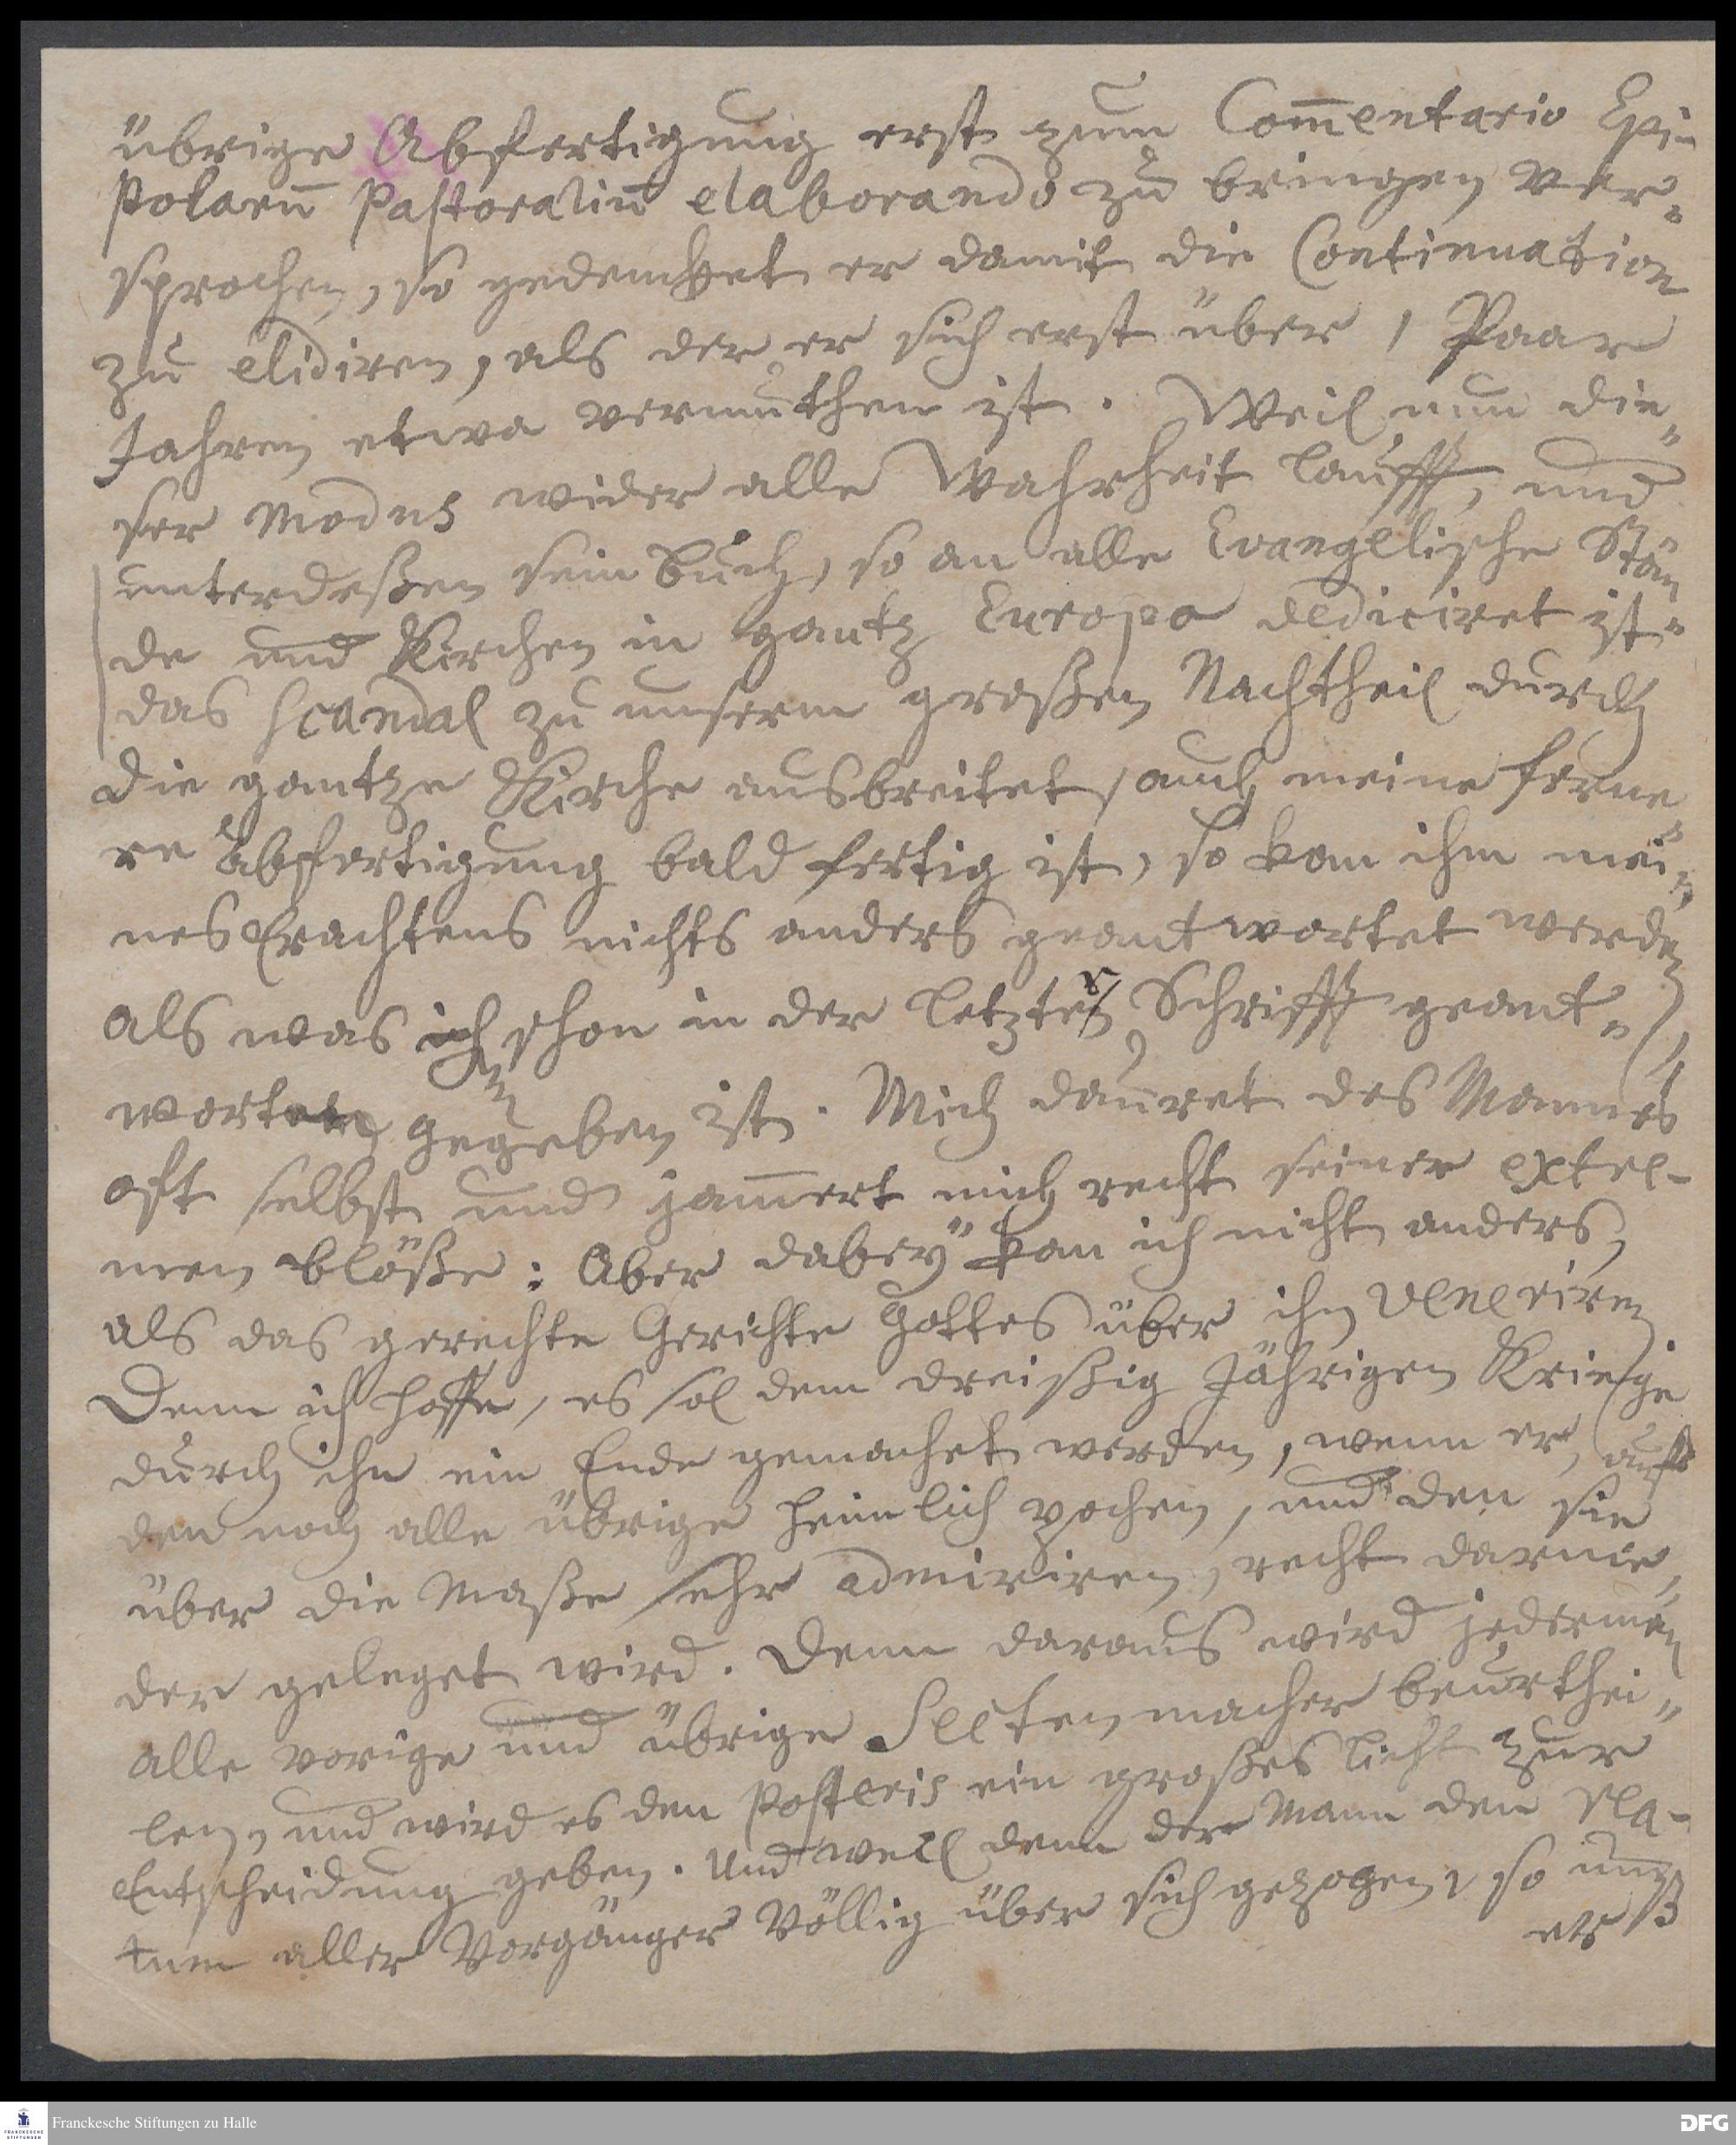 übrige Abfertigung erst zum Com̅entario Epi-
stolaru̅ Pastoraliu̅ elaborando zu bringen ver-
sprochen, so gedencket er damit die Continuation
zu elidiren, als der er sich erst über 1 Paar
Jahren etwa vermuthen ist. Weil nun die-
ser Modus wider alle Wahrheit laufft, und
unterdeßen sein Buch, so an alle Evangelische Stän-
de und Kirchen in gantz Europa dediciret ist
das Scandal zu unserm großen Nachtheil durch
die gantze Kirche ausbreitet, auch meine ferne-
re Abfertigung bald fertig ist, so kan ihm mei-
nes Erachtens nichts anders geantwortet werden
als was ich schon in der letzter Schrifft geant-
worten gegeben ist. Mich dauret des Mannes
oft selbst und jam̅ert mich recht seiner extre-
men Blöße: Aber dabey kan ich nicht anders,
als das gerechte Gerichte Gottes über ihn veneriren.
Denn ich hoffe, es sol dem dreißig Jährigen Kriege
durch ihn ein Ende gemachet werden, wenn er, auf
den noch alle übrige heimlich pochen, und den sie
über die Maße sehr admiriren, recht darnie-
der geleget wird. Denn daraus wird jederman
alle vorige und übrige Secten macher beurthei-
len, und wird es den Posteris ein großes Licht zur
Entscheidung geben. Und weil denn der Mann den rea-
tum aller Vorgänger völlig über sich gezogen, so muß
er
Franckesche Stiftungen zu Halle
FRANCKESCHE STIFTUNGEN
DFG